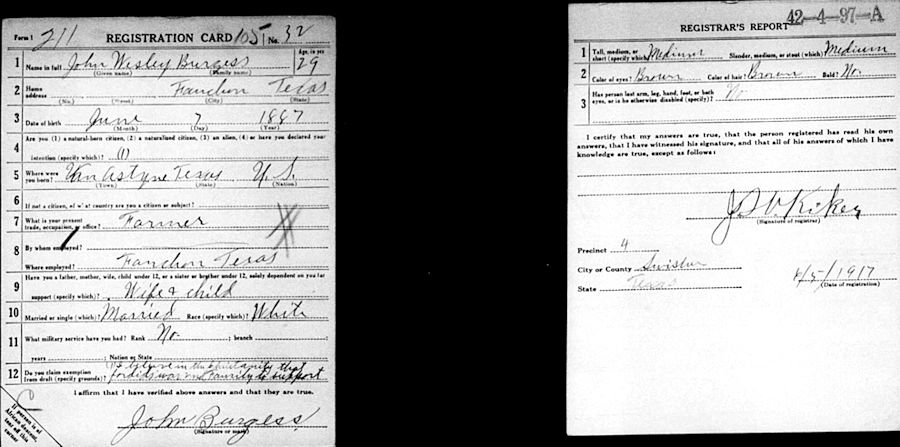 Form 1 211 REGISTRATION CARD 105 No. 32
Age, in yrs
1 Name in full John Wesley Burgess 29
(Given name) (Family name)
2 Home address Fanchon Texas
(No.) (Street) (City) (State)
3 Date of birth June 7 1887
(Month) (Day) (Year)
4 Are you (1) a natural-born citizen, (2) a naturalized citizen, (3) an alien, (4) or have you declared your
intention (specify which)? (1)
5 Where were you born? Van Alstyne Texas U.S.
(Town) (State) (Nation)
6 If not a citizen, of what country are you a citizen or subject?
7 What is your present trade, occupation, or office? Farmer
8 By whom employed?
Where employed? Fanchon Texas
9 Have you a father, mother, wife, child under 12, or a sister or brother under 12, solely dependent on you for
support (specify which)? Wife & child
10 Married or single (which)? Married Race (specify which)? White
11 What military service have you had? Rank No ; branch ;
years ; Nation or State
12 Do you claim exemption from draft (specify grounds)? that
family to support
I affirm that I have verified above answers and that they are true.
John Burgess
(Signature or mark)
If person is of
African descent,
tear off this
corner
42-4-97-A
REGISTRAR'S REPORT
1 Tall, medium, or short (specify which)? Medium Slender, medium, or stout (which)? Medium
2 Color of eyes? Brown Color of hair? Brown Bald? No.
3 Has person lost arm, leg, hand, foot, or both
eyes, or is he otherwise disabled (specify)? No
I certify that my answers are true, that the person registered has read his own
answers, that I have witnessed his signature, and that all of his answers of which I have
knowledge are true, except as follows:
(Signature of registrar)
Precinct 4
City or County Swisher
State Texas
6/5/1917
(Date of registration)